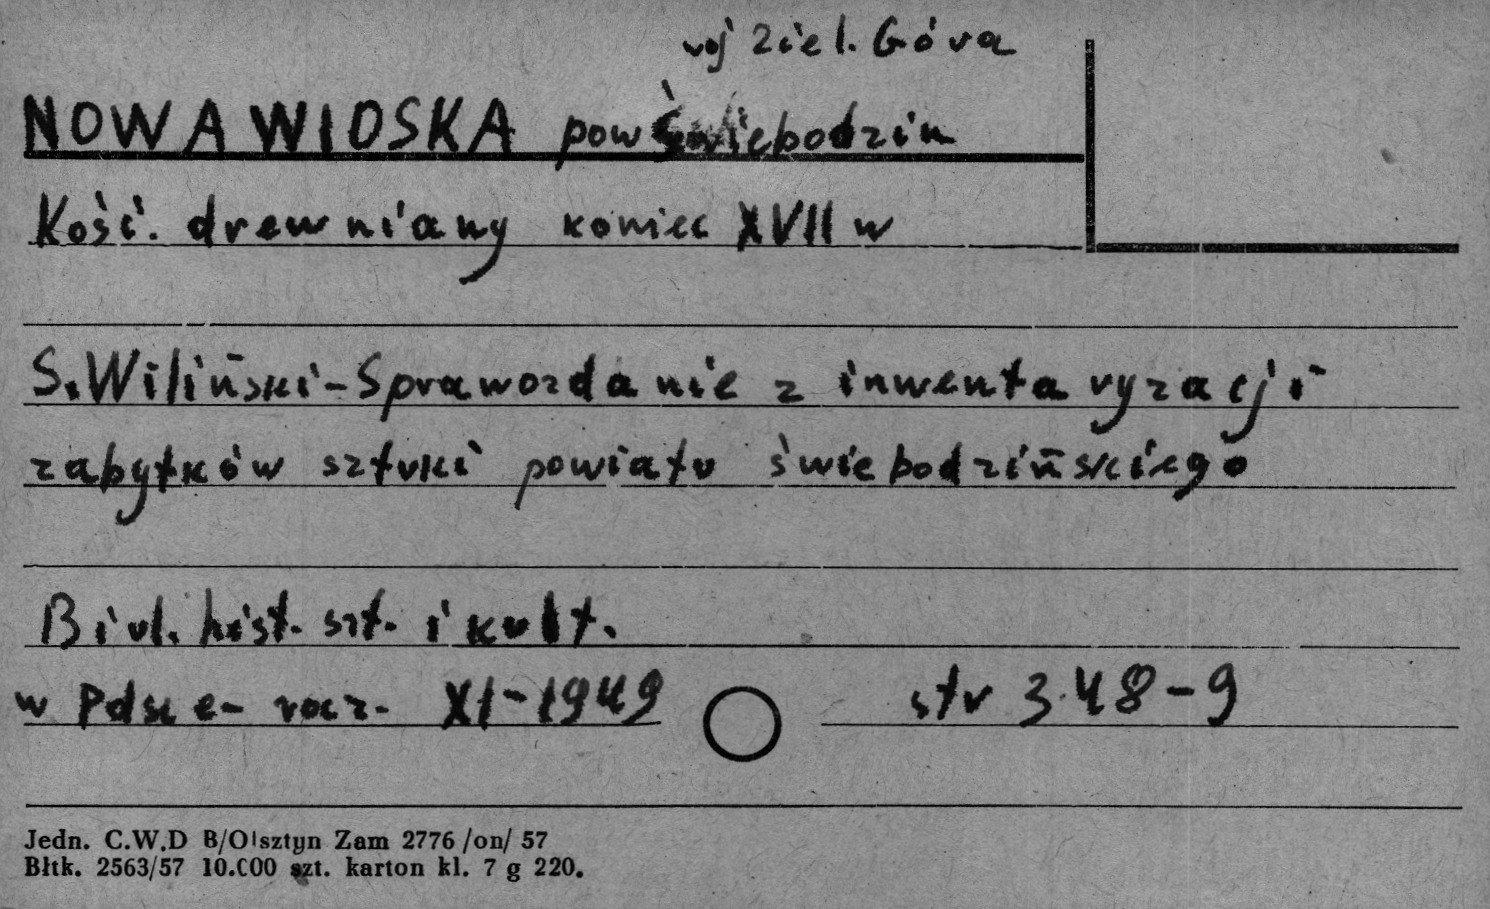 woj Ziel. Góra
NOWA WIOSKA pow Świebodzin
Kość. drewniany koniec XVII w
S. Wiliński - Sprawozdanie z inwentaryzacji
zabytków sztuki powiatu świebodzińskiego
Biul. hist. szt. i kult.
w Polsce - rocz. XI - 1949 str 348-9
Jedn. C.W.D B/Olsztyn Zam 2776 /on/ 57
Błtk. 2563/57 10.000 szt. karton kl. 7 g 220.